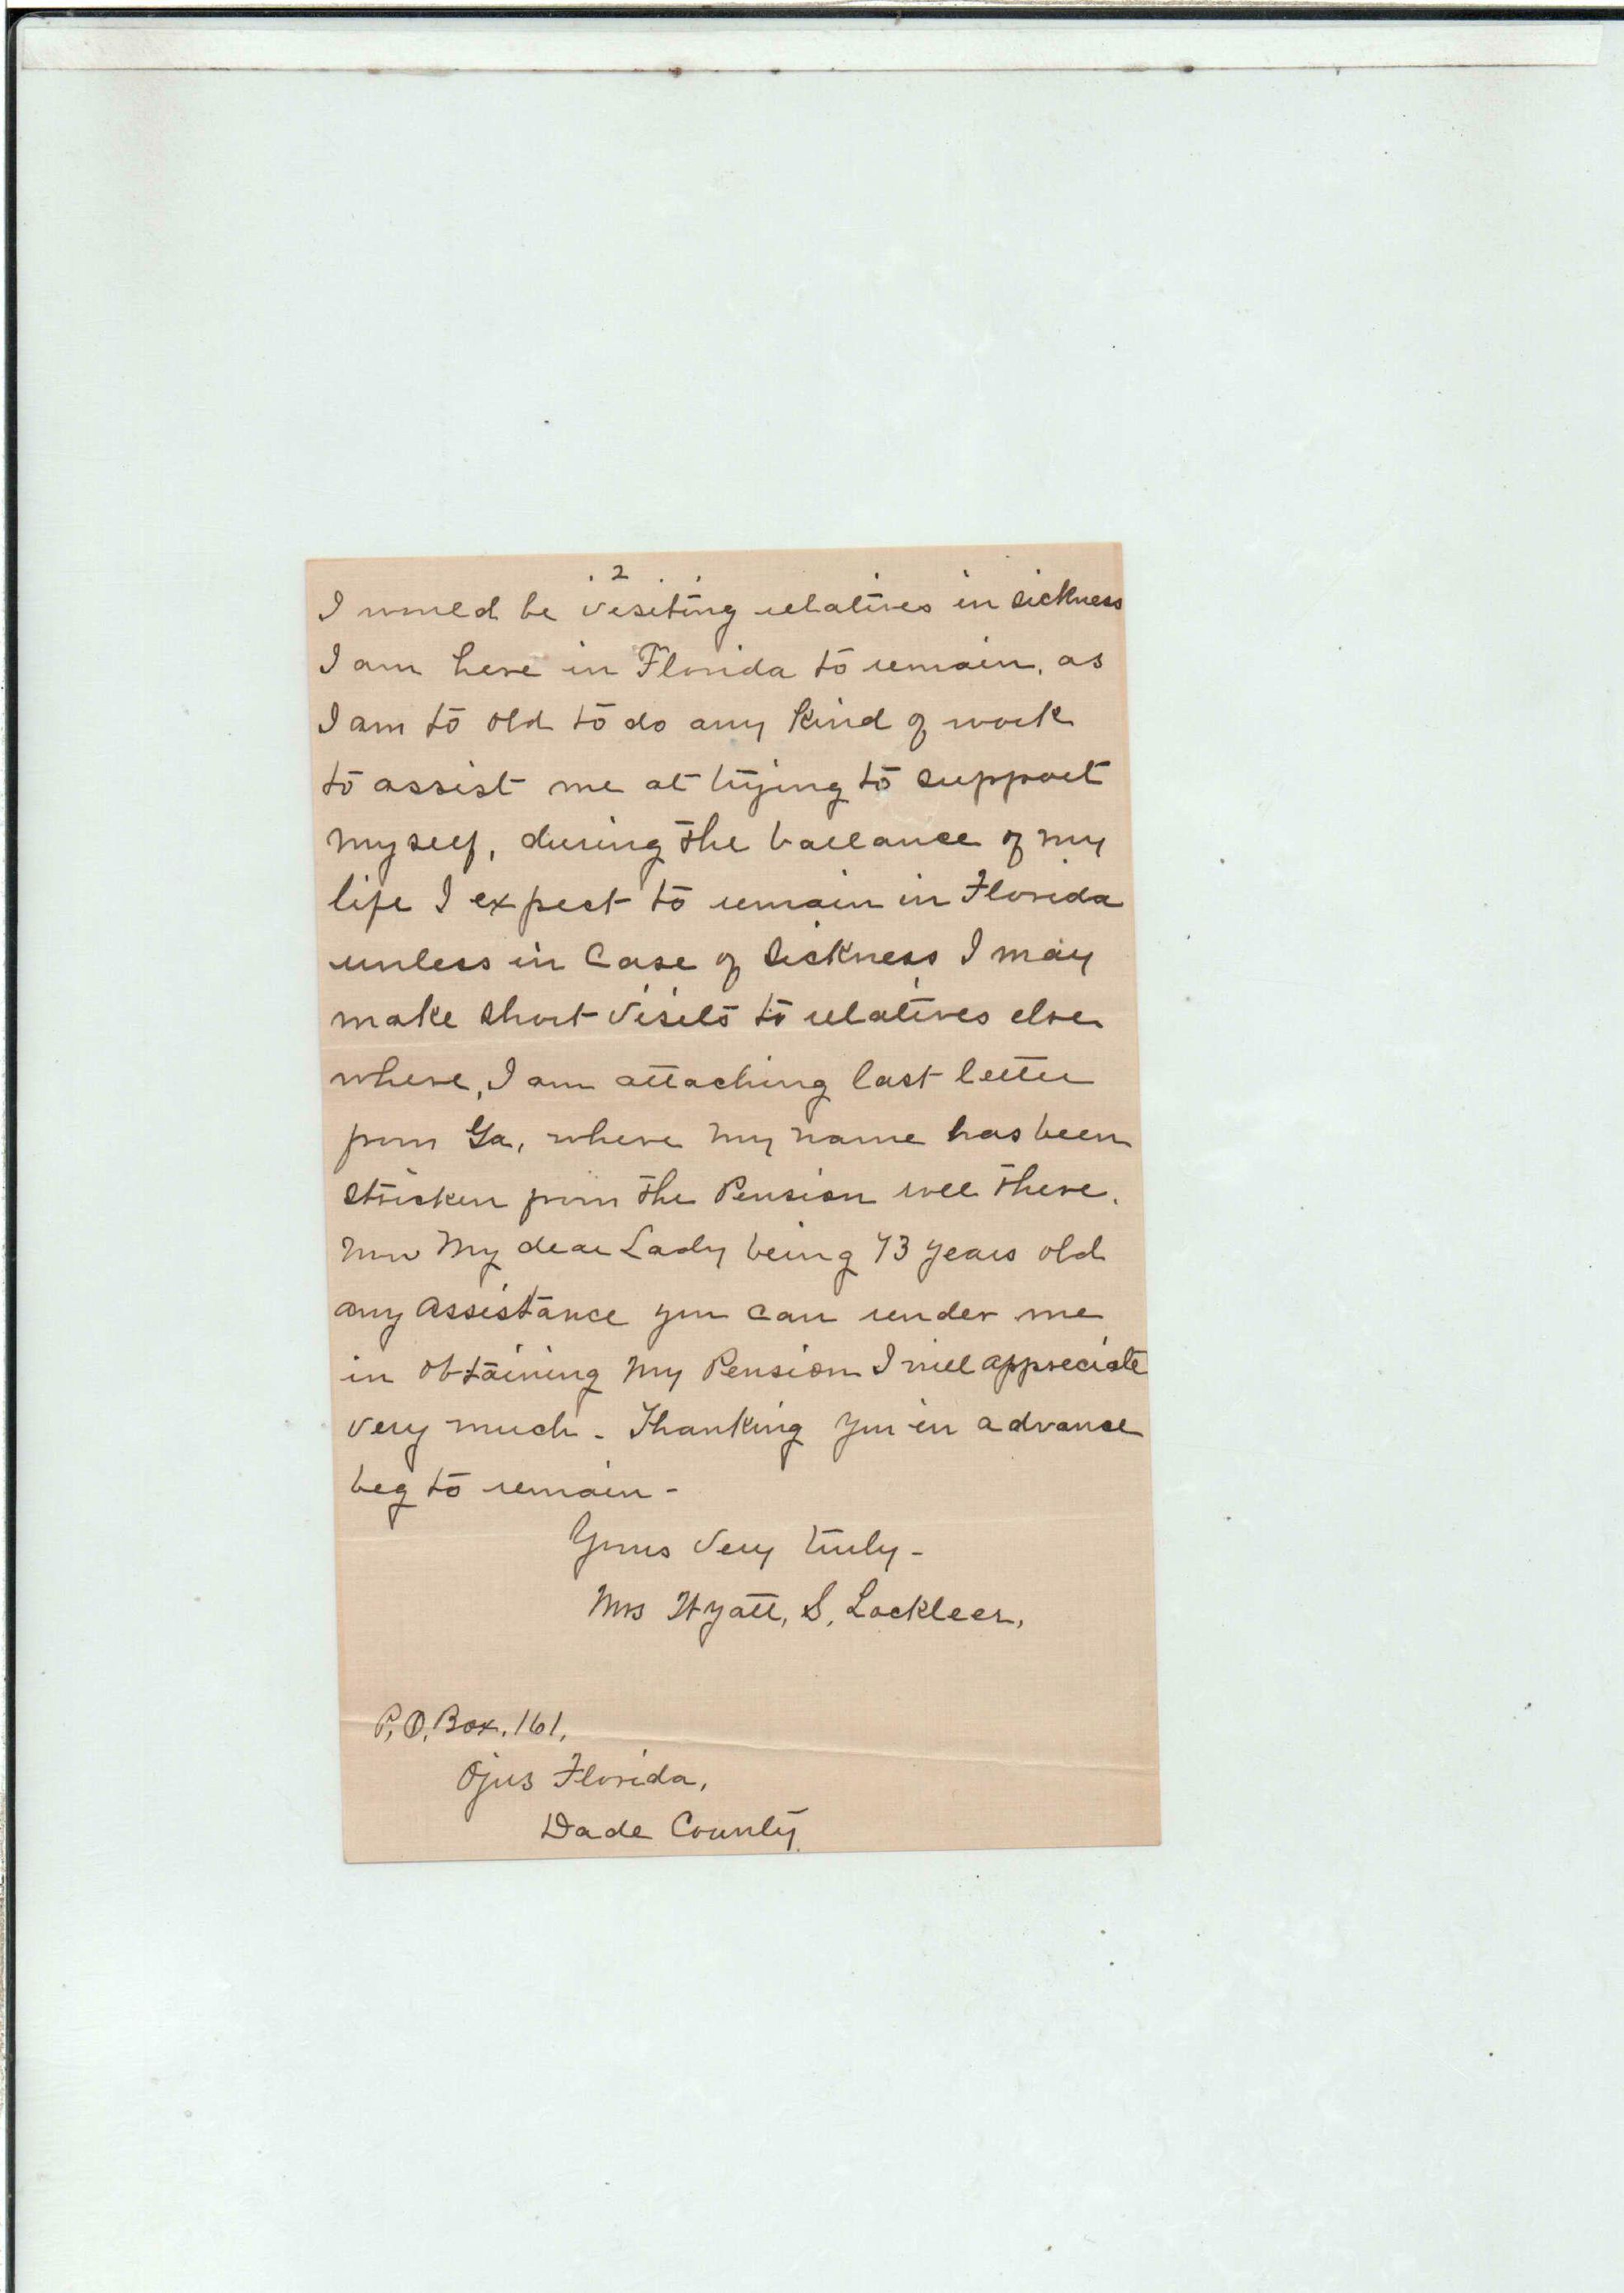 2
I would be visiting relatives in sickness
I am here in Florida to remain, as
I am to old to do any kind of work
to assist me at trying to support
myself, during the ballance of my
life I expect to remain in Florida
unless in case of sickness I may
make short visits to relatives else
where, I am attaching last letter
from Ga, where my name has been
stricken from the Pension roll there.
Now My dear Lady being 73 years old
any assistance you can render me
in obtaining my Pension I will appreciate
very much - Thanking you in advance
beg to remain -
Yours very truly -
Mrs Wyatt, S, Lockleer,
P, O, Box, 161,
Ojus Florida,
Dade County